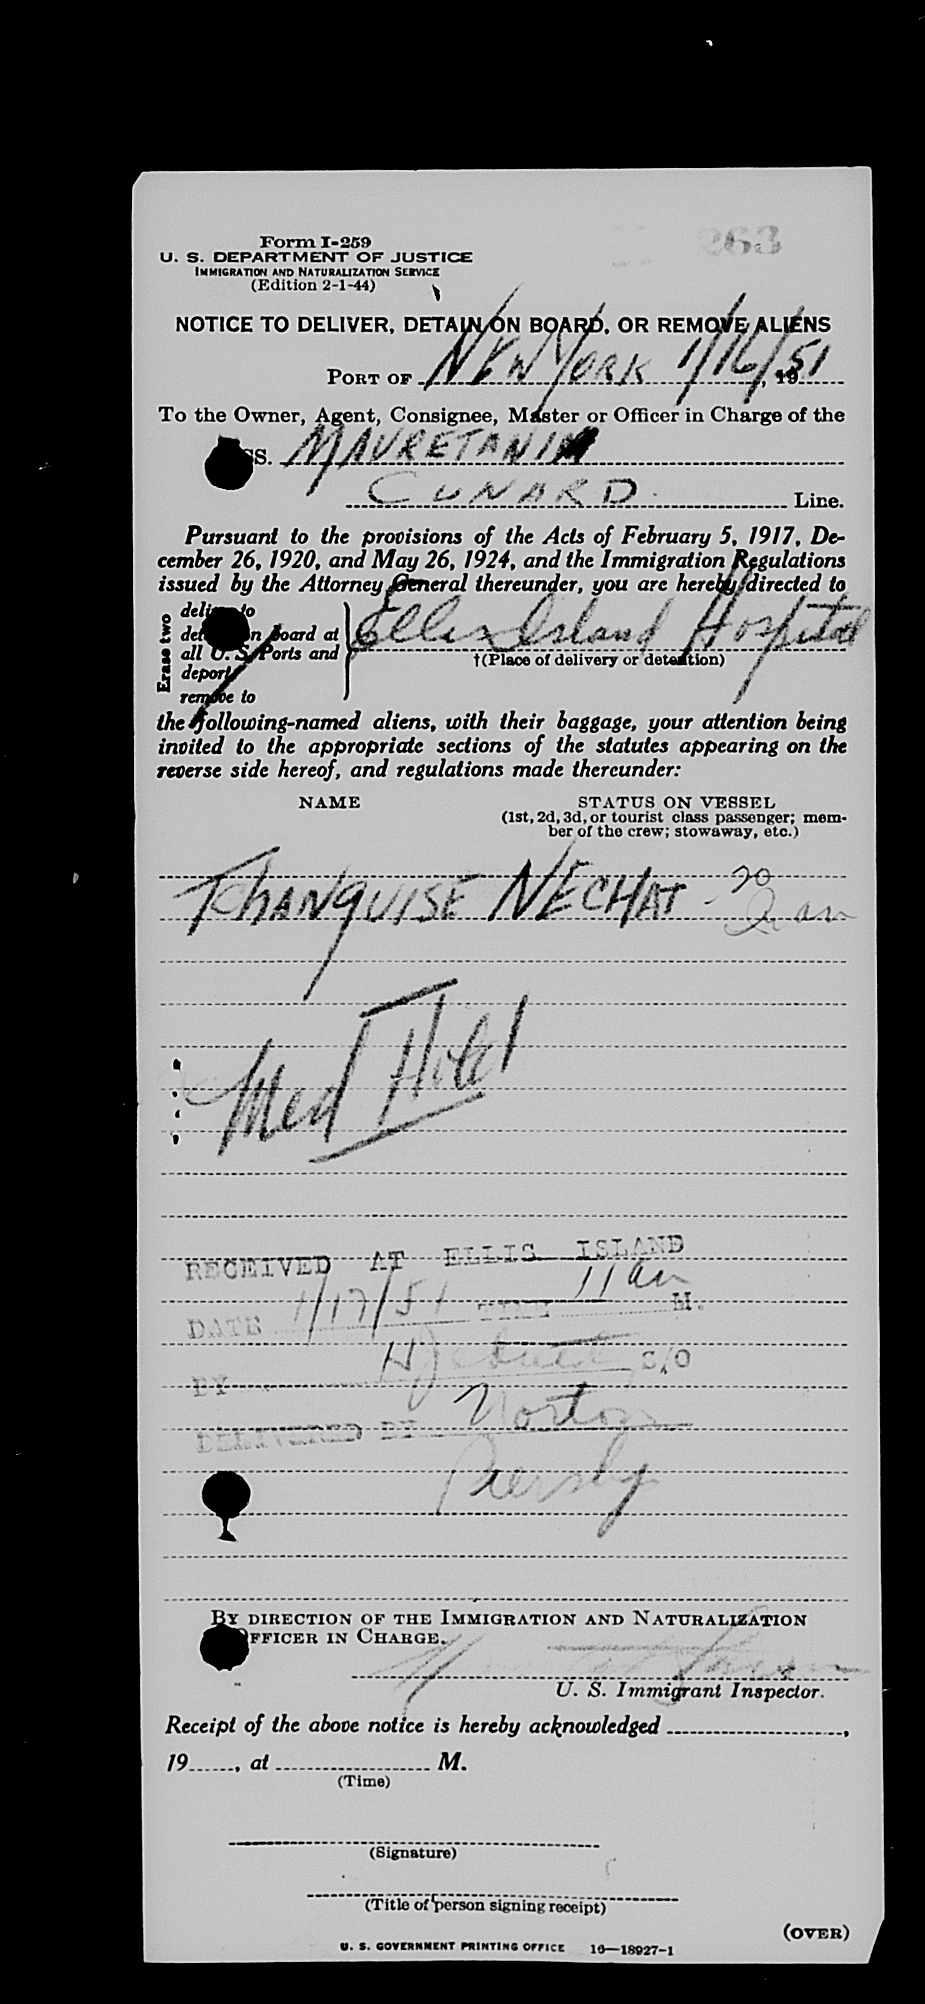 263
Form I-259
U. S. DEPARTMENT OF JUSTICE
IMMIGRATION AND NATURALIZATION SERVICE
(Edition 2-1-44)
NOTICE TO DELIVER, DETAIN ON BOARD, OR REMOVE ALIENS
PORT OF NEW YORK 1/16/51, 19
To the Owner, Agent, Consignee, Master or Officer in Charge of the
SS. MAURETANIA
CUNARD Line.
Pursuant to the provisions of the Acts of February 5, 1917, De-
cember 26, 1920, and May 26, 1924, and the Immigration Regulations
issued by the Attorney General thereunder, you are hereby directed to
Erase two
deliver to
detain on board at
all U. S. Ports and
deport
remove to
Ellis Island Hospital
†(Place of delivery or detention)
the following-named aliens, with their baggage, your attention being
invited to the appropriate sections of the statutes appearing on the
reverse side hereof, and regulations made thereunder:
NAME STATUS ON VESSEL
(1st, 2d, 3d, or tourist class passenger; mem-
ber of the crew; stowaway, etc.)
KhANQUISE NECHAT - 20
Iran
Med Hold
RECEIVED AT ELLIS ISLAND
DATE 1/17/51 TIME 11 am M.
BY S/O
DELIVERED BY Norton
BY DIRECTION OF THE IMMIGRATION AND NATURALIZATION
OFFICER IN CHARGE.
U. S. Immigrant Inspector.
Receipt of the above notice is hereby acknowledged ,
19 , at M.
(Time)
(Signature)
(Title of person signing receipt)
(OVER)
U. S. GOVERNMENT PRINTING OFFICE 16—18927-1